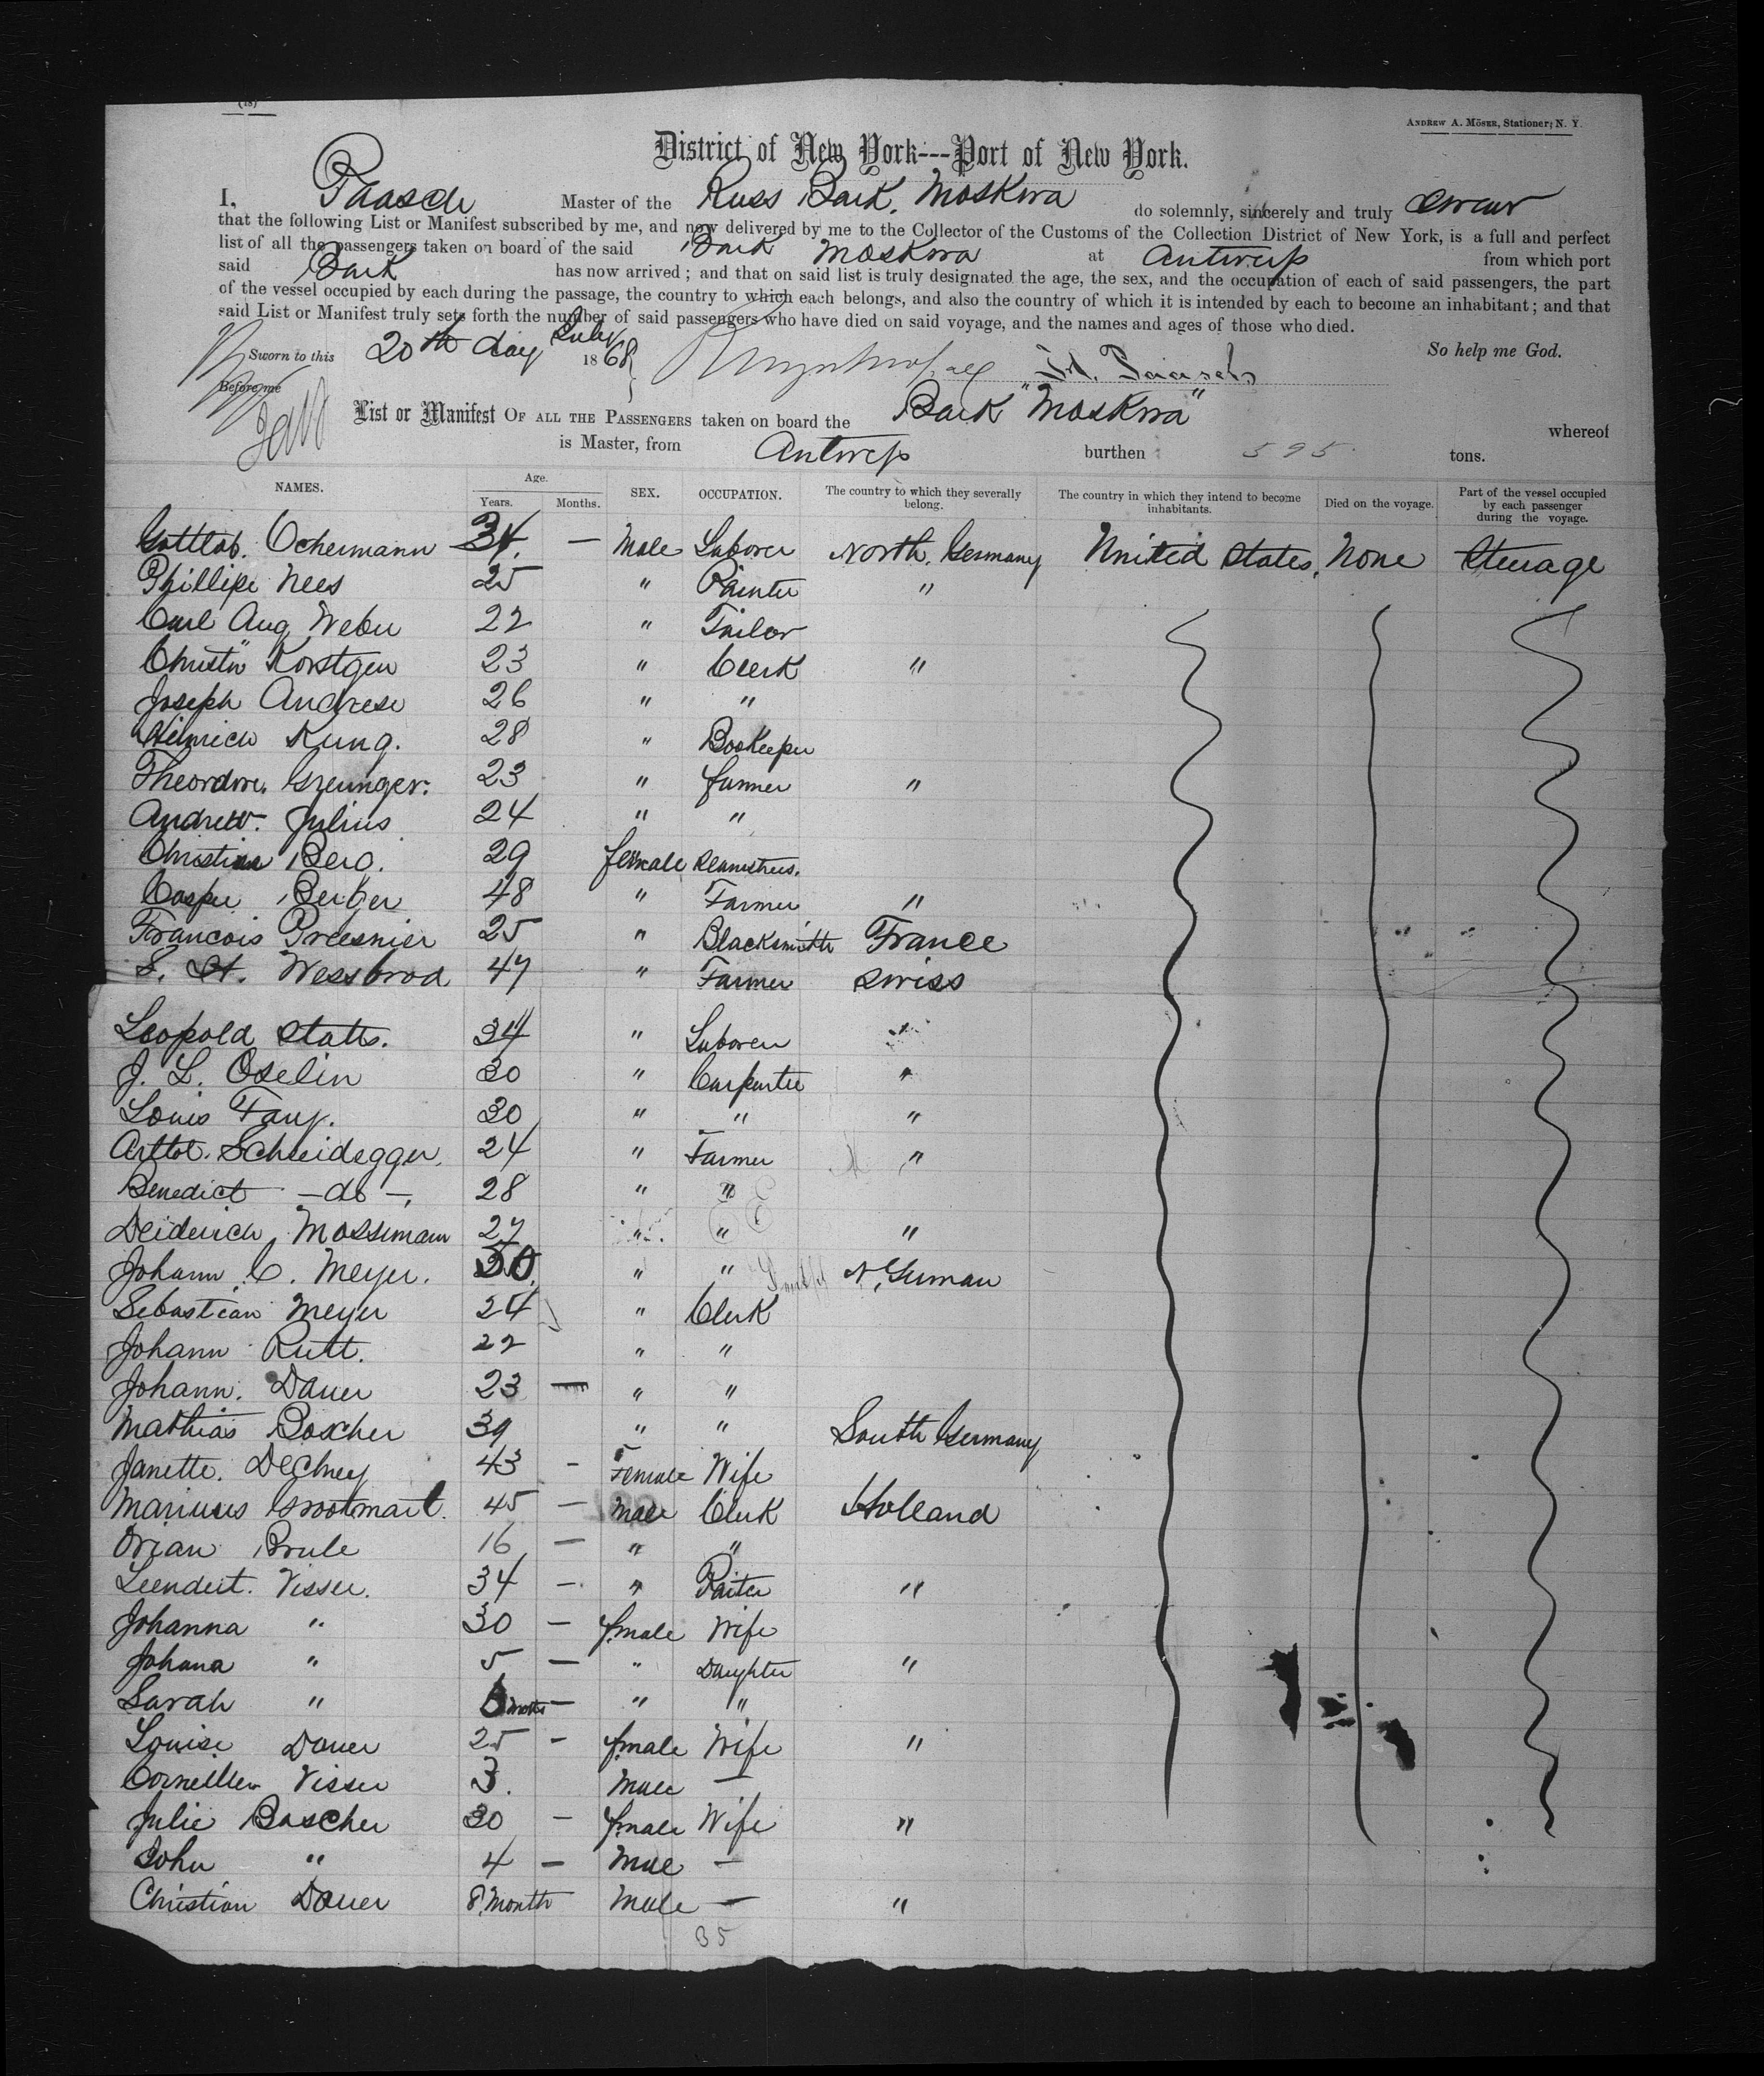 (18)
ANDREW A. MÖSER, Stationer, N. Y.
District of New York---Port of New York.
I, Paasch Master of the Russ Bark. Moskwa do solemnly, sincerely and truly swear
that the following List or Manifest subscribed by me, and now delivered by me to the Collector of the Customs of the Collection District of New York, is a full and perfect
list of all the passengers taken on board of the said Bark Moskwa at Antwerp from which port
said Bark has now arrived; and that on said list is truly designated the age, the sex, and the occupation of each of said passengers, the part
of the vessel occupied by each during the passage, the country to which each belongs, and also the country of which it is intended by each to become an inhabitant; and that
said List or Manifest truly sets forth the number of said passengers who have died on said voyage, and the names and ages of those who died.
Sworn to this 20th day July 1868 So help me God.
Before me Paasch
List or Manifest OF ALL THE PASSENGERS taken on board the Bark "Moskwa" whereof
is Master, from Antwerp burthen 595 tons.
NAMES. Age. Years. Months. SEX. OCCUPATION. The country to which they severally belong. The country in which they intend to become inhabitants. Died on the voyage. Part of the vessel occupied by each passenger during the voyage.
Gottlob. Ochermann 34. — Male Laborer North. Germany United States, None Steurage
Phillipe Nees 25 " Painter "
Carl Aug Weber 22 " Tailor
Christn Korstgen 23 " Clerk "
Joseph Andrese 26 " "
Heinrich Kung. 28 " Bookeeper
Theordore. Greunger. 23 " farmer "
Andrew. Julius 24 " "
Christian Berg. 29 female Seamstress.
Casper Berber 48 " Farmer "
Francois Preesnier 25 " Blacksmith France
S. St. Wessbrod 47 " Farmer Swiss
Leopold Statts. 34 " Laborer
J. L. Oselin 30 " Carpenter "
Louis Fany. 30 " " "
Scheidegger. 24 " Farmer "
Benedict —do—. 28 " "
Deiderich Mossimann 27 " " "
Johann C. Meyer. 30. " " N. German
Sebastian Meyer 24 " Clerk
Johann Rutt. 22 " "
Johann. Dauer 23 — " "
Mathias Boscher 39 " " South Germany
Janette. Dechney 43 — Female Wife
Marinus Grootmart. 45 — Male Clerk Holland
Orian Brule 16 — " "
Leendert. Visser. 34 — " Paiter "
Johanna " 30 — female Wife
Johana " 5 — " Daughter "
Sarah " 6 months — " "
Louise Dauer 25 — female Wife "
Cornellen Visser 3. Male —
Julie Boscher 30 — female Wife "
John " 4 — Male —
Christian Dauer 8 Month Male — "
35